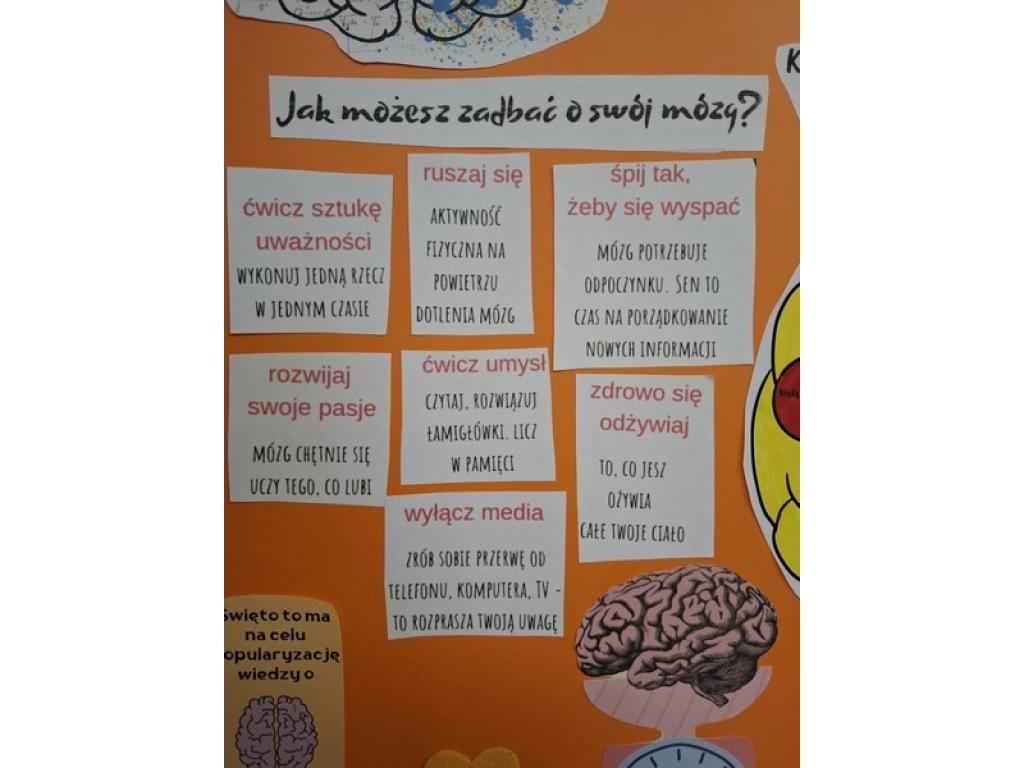 Jak możesz zadbać o swój mózg?
K
ćwicz sztukę
uważności
WYKONUJ JEDNĄ RZECZ
W JEDNYM CZASIE
ruszaj się
AKTYWNOŚĆ
FIZYCZNA NA
POWIETRZU
DOTLENIA MÓZG
śpij tak,
żeby się wyspać
MÓZG POTRZEBUJE
ODPOCZYNKU. SEN TO
CZAS NA PORZĄDKOWANIE
NOWYCH INFORMACJI
rozwijaj
swoje pasje
MÓZG CHĘTNIE SIĘ
UCZY TEGO, CO LUBI
ćwicz umysł
CZYTAJ, ROZWIĄZUJ
ŁAMIGŁÓWKI. LICZ
W PAMIĘCI
zdrowo się
odżywiaj
TO, CO JESZ
OŻYWIA
CAŁE TWOJE CIAŁO
wyłącz media
ZRÓB SOBIE PRZERWĘ OD
TELEFONU, KOMPUTERA, TV -
TO ROZPRASZA TWOJĄ UWAGĘ
Święto to ma
na celu
opularyzację
wiedzy o